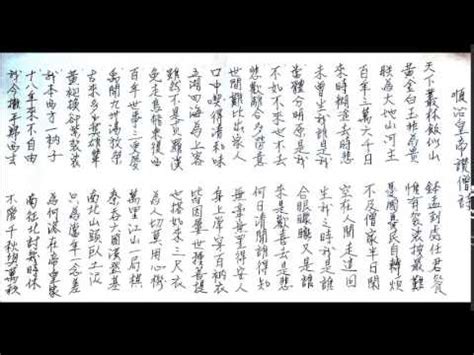 順治皇帝讚僧詩
天下叢林飯似山 鉢盂到處任君餐
黃金白玉非為貴 惟有袈裟披最難
朕為大地山河主 憂國憂民自轉煩
百年三萬六千日 不及僧家半日閒
來時糊塗去時迷 空在人間走這回
未曾生我誰是我 生我之時我是誰
當體分明原是我 合眼朦朧又是誰
不如不來也不去 來是歡喜去是悲
悲歡離合多勞慮 何日清閒誰得知
世間難比出家人 無牽無掛得安人
口中喫得清和味 身上常穿百衲衣
五湖四海為上客 皆因夙世種菩提
雖然不是真羅漢 也搭如來三尺衣
兔走烏飛東復西 為人切莫用心機
百年世事三更夢 萬里江山一局棋
禹開九州湯放桀 秦吞六國漢登基
古來多少英雄輩 南北山頭臥土泥
黃袍換卻紫袈裟 只為當年一念差
我本西方一衲子 為何落在帝皇家
十八年來不自由 南征北討幾時休
我今撒手歸西去 不管千秋與萬秋